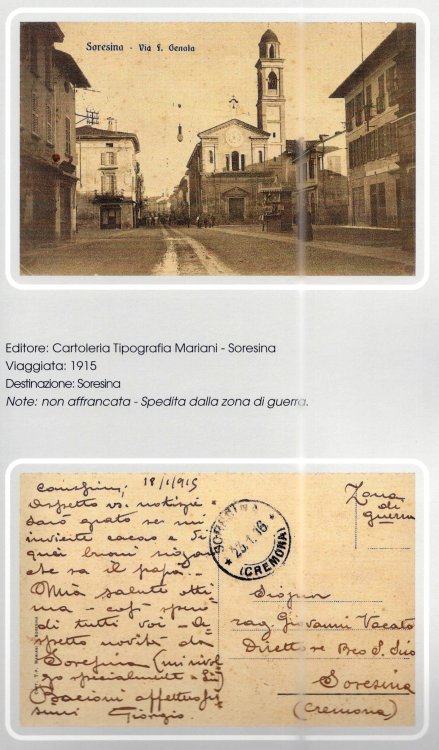 Soresina - Via F. Genala
Editore: Cartoleria Tipografia Mariani - Soresina
Viaggiata: 1915
Destinazione: Soresina
Note: non affrancata - Spedita dalla zona di guerra.
18/1/915
Aspetto vs. notizie
sarò grato se mi
invierete cacao e di
quei buoni
che sa il papà.
Mia salute otti
ma - così spero
di tutti voi -
spetto novità da
Soresina (mi rivol
go specialmente a
Bacioni affettuosis
simi Giorgio
SORESINA
23.1.16
(CREMONA)
Zona
di
guerra
Signor
rag. Giovanni
Direttore
Soresina
(Cremona)